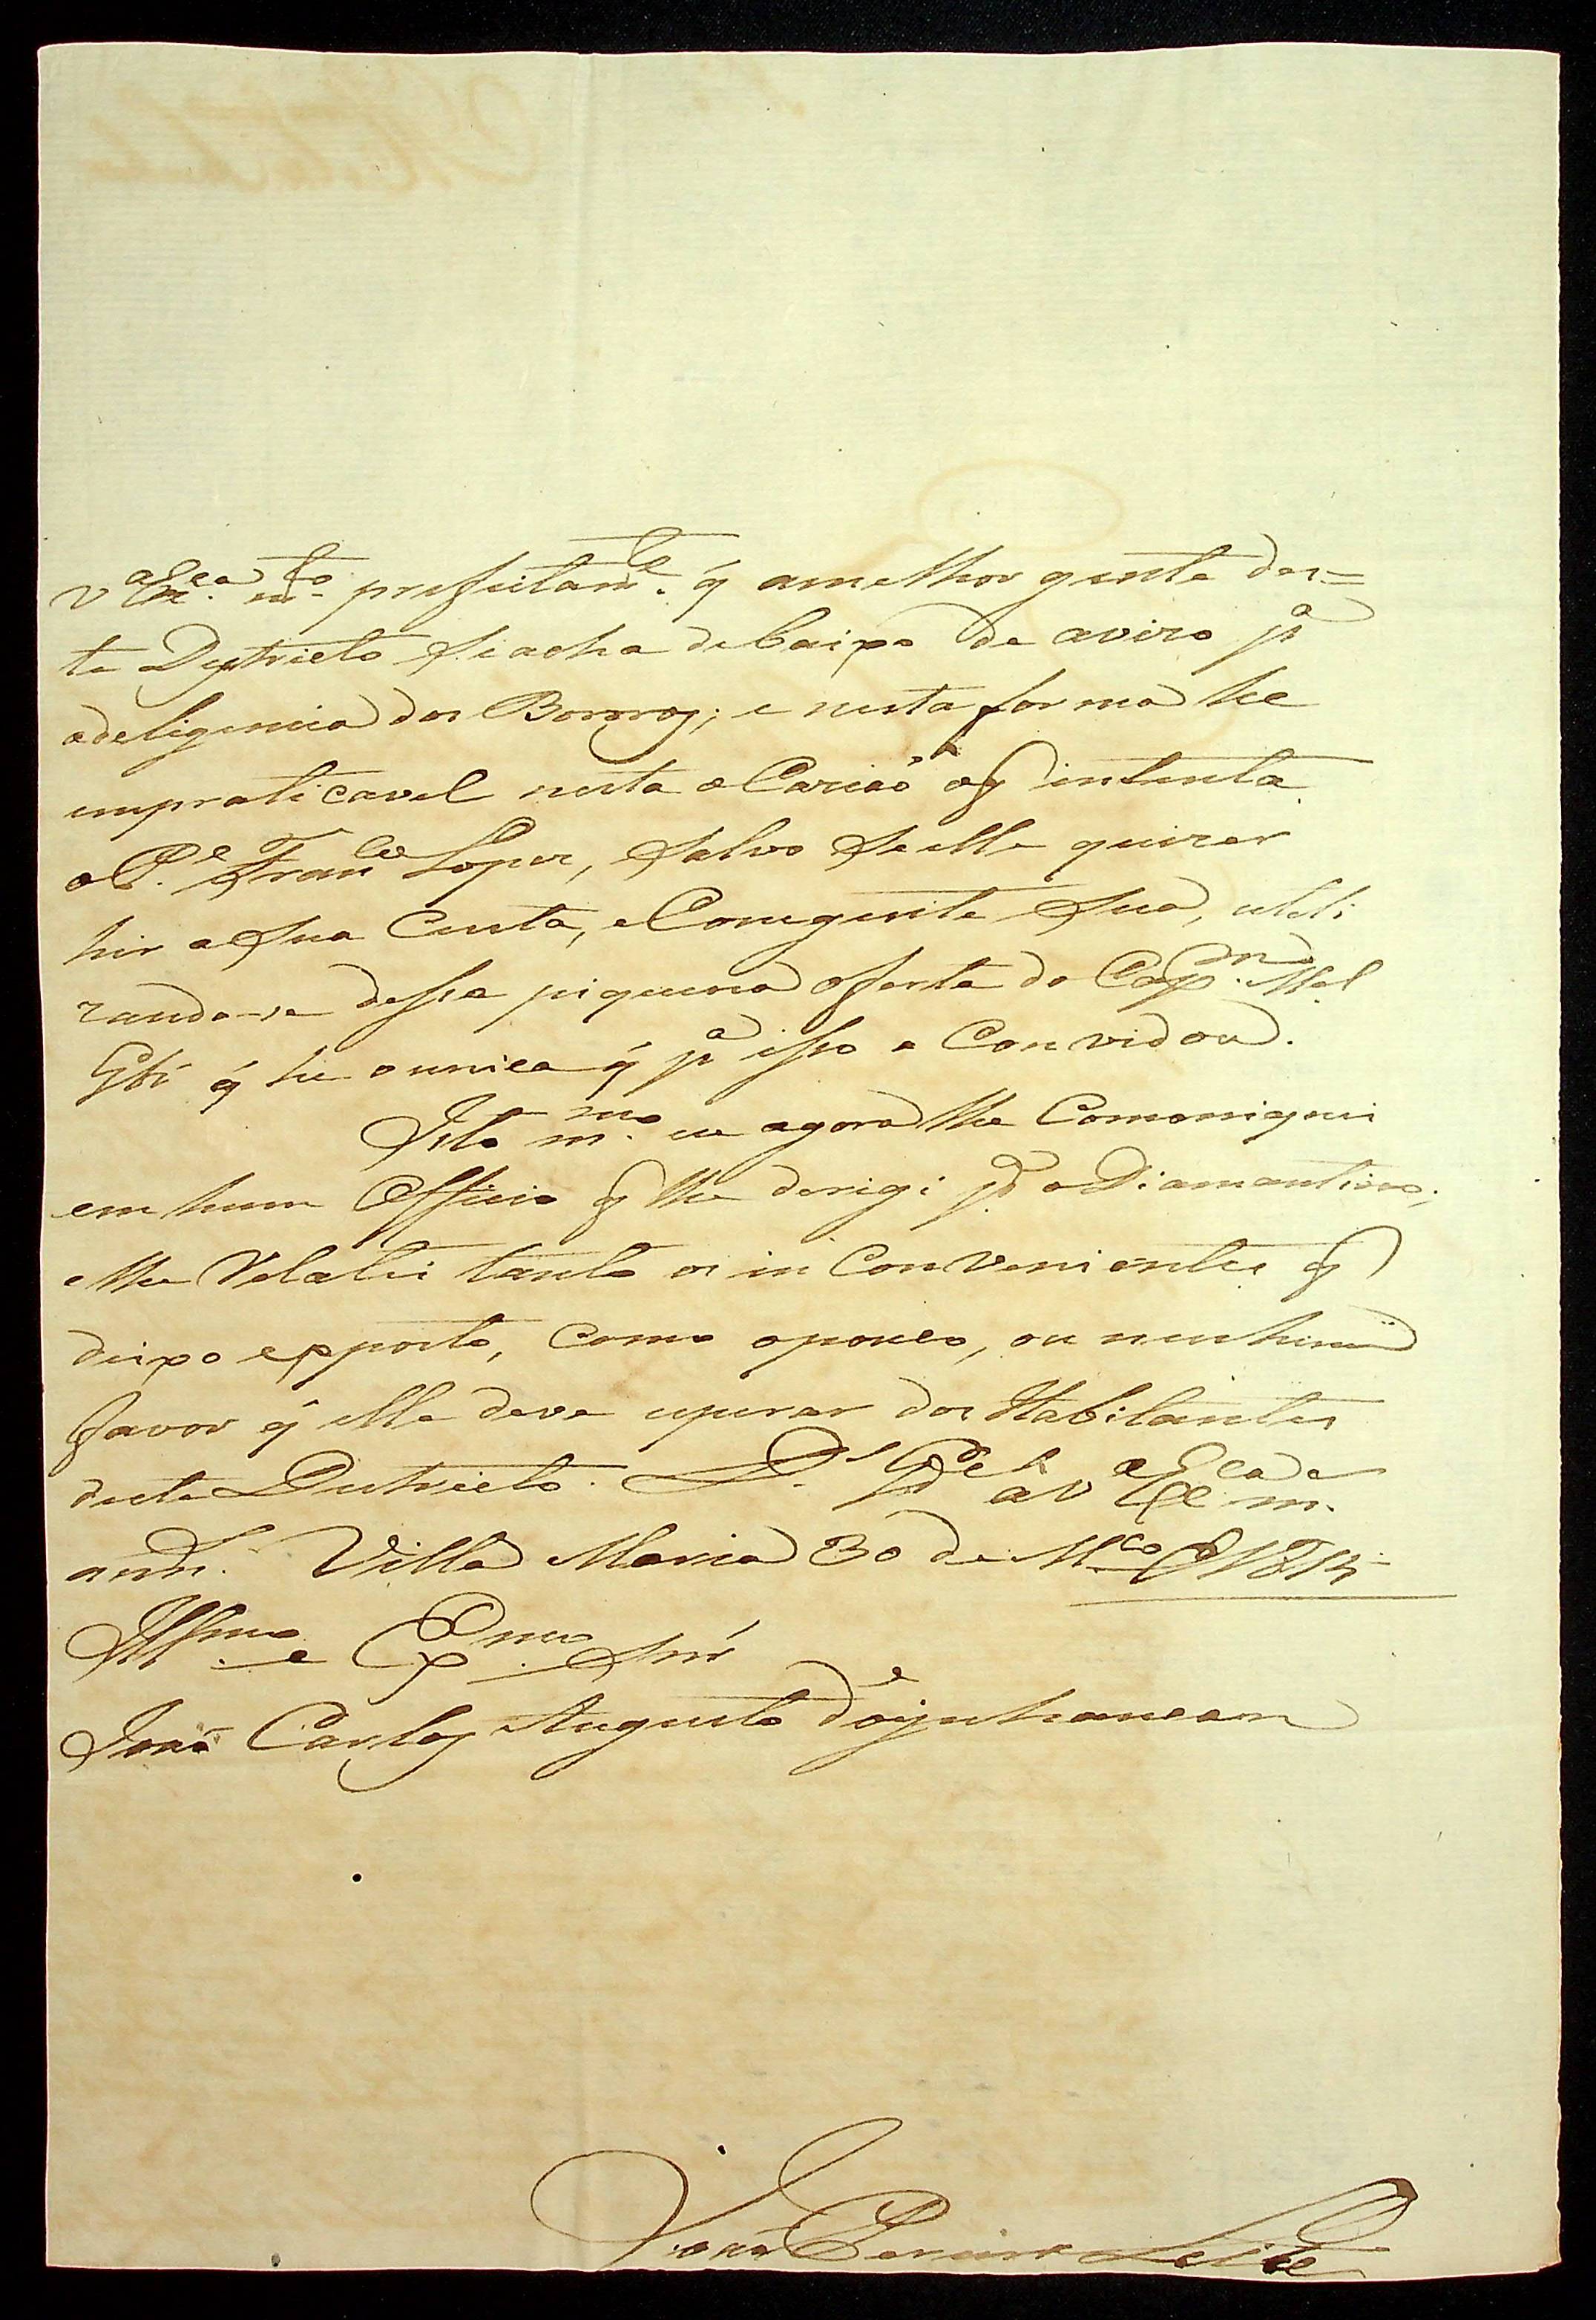 V.ª Ex.ca m.to prefeitam.te q̃ amelhor gente des=
te Destricto se acha debaixo de aviso p.ª
adeligencia dos Bororos; e nesta forma he
empraticavel nesta ocaziaõ oq̃ intenta
o P.e Fran.co Lopes, salvo se elle quizer
hir a sua Custa, e Comgente sua, utili
zando-se dessa piquena oferta do Cap.m M.el
q̃ he o unico q̃ p.ª isso o Convidou.
Isto m.mo eu agora lhe Comoniquei
em hum Officio q̃ lhe derigi p.ª o Diamantino;
e lhe Relatei tanto os in Convenientes q̃
deixo exposto, como opouco, ou nenhum
favor q̃ elle deve esperar dos Habitantes
deste Destricto. D.s G.de a V.ª Ex.ca m.
ann.s Villa Maria 30 de M.ço d 181
Ill.mo e Ex.mo Snr̃
Joaõ Carlos Augusto d'Oeynhausen
Joaõ Pereira Leite